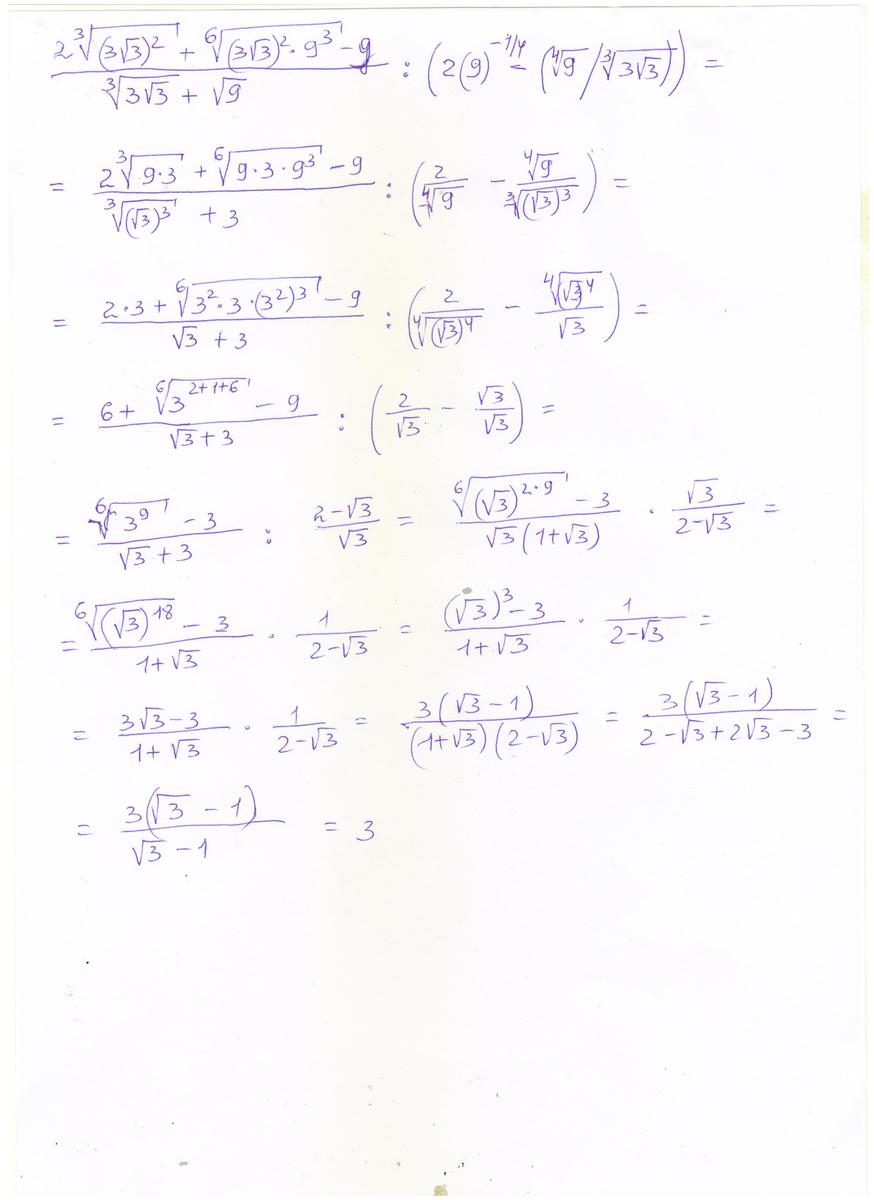 \frac{2\sqrt[3]{(3\sqrt{3})^2} + \sqrt[6]{(3\sqrt{3})^2 \cdot 9^3} - 9}{\sqrt[3]{3\sqrt{3}} + \sqrt{9}} : (2(9)^{-1/4} - (\sqrt[4]{9} / \sqrt[3]{3\sqrt{3}})) =
= \frac{2\sqrt[3]{9 \cdot 3} + \sqrt[6]{9 \cdot 3 \cdot 9^3} - 9}{\sqrt[3]{(\sqrt{3})^3} + 3} : (\frac{2}{\sqrt[4]{9}} - \frac{\sqrt[4]{9}}{\sqrt[3]{(\sqrt{3})^3}}) =
= \frac{2 \cdot 3 + \sqrt[6]{3^2 \cdot 3 \cdot (3^2)^3} - 9}{\sqrt{3} + 3} : (\frac{2}{\sqrt[4]{(\sqrt{3})^4}} - \frac{\sqrt[4]{(\sqrt{3})^4}}{\sqrt{3}}) =
= \frac{6 + \sqrt[6]{3^{2+1+6}} - 9}{\sqrt{3} + 3} : (\frac{2}{\sqrt{3}} - \frac{\sqrt{3}}{\sqrt{3}}) =
= \frac{\sqrt[6]{3^9} - 3}{\sqrt{3} + 3} : \frac{2 - \sqrt{3}}{\sqrt{3}} = \frac{\sqrt[6]{(\sqrt{3})^{2 \cdot 9}} - 3}{\sqrt{3}(1 + \sqrt{3})} \cdot \frac{\sqrt{3}}{2 - \sqrt{3}} =
= \frac{\sqrt[6]{(\sqrt{3})^{18}} - 3}{1 + \sqrt{3}} \cdot \frac{1}{2 - \sqrt{3}} = \frac{(\sqrt{3})^3 - 3}{1 + \sqrt{3}} \cdot \frac{1}{2 - \sqrt{3}} =
= \frac{3\sqrt{3} - 3}{1 + \sqrt{3}} \cdot \frac{1}{2 - \sqrt{3}} = \frac{3(\sqrt{3} - 1)}{(1 + \sqrt{3})(2 - \sqrt{3})} = \frac{3(\sqrt{3} - 1)}{2 - \sqrt{3} + 2\sqrt{3} - 3} =
= \frac{3(\sqrt{3} - 1)}{\sqrt{3} - 1} = 3